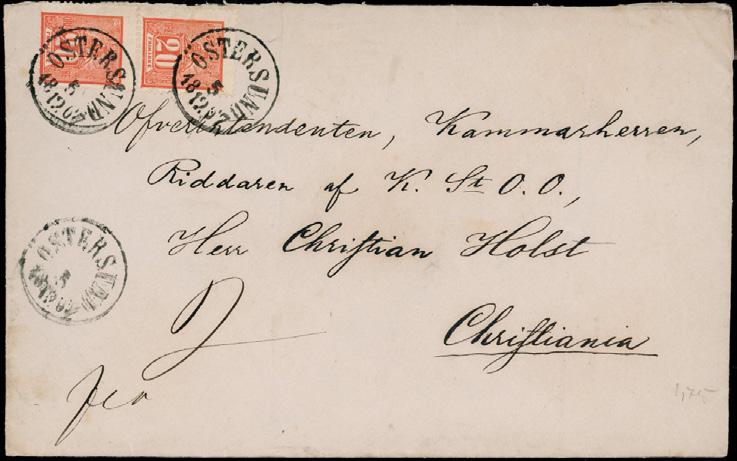 20
ÖSTERSUND
5
18 12 67
ÖSTERSUND
5
18 12 67
Öfverintendenten, Kammarherren,
Riddaren af K. St. O. O.,
Herr Christian Holst
Christiania
ÖSTERSUND
5
fco
1,75